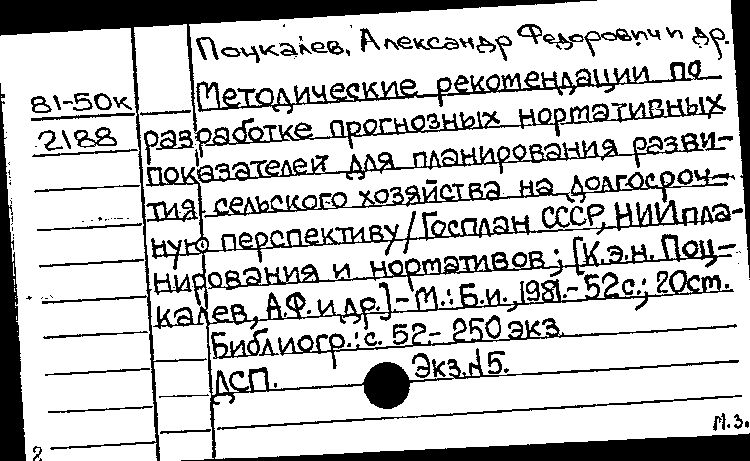 Поцкалев, Александр Федорович и др.
81-50к Методические рекомендации по
2188 разработке прогнозных нормативных
показателей для планирования разви-
тия сельского хозяйства на долгосроч-
ную перспективу/Госплан СССР, НИИ пла-
нирования и нормативов; [К.э.н. Поц-
калев, А.Ф. и др.].- М.: Б.и., 1981.- 52с.; 20см.
Библиогр.: с. 52.- 250 экз.
ДСП. Экз.№5.
М.З.
2